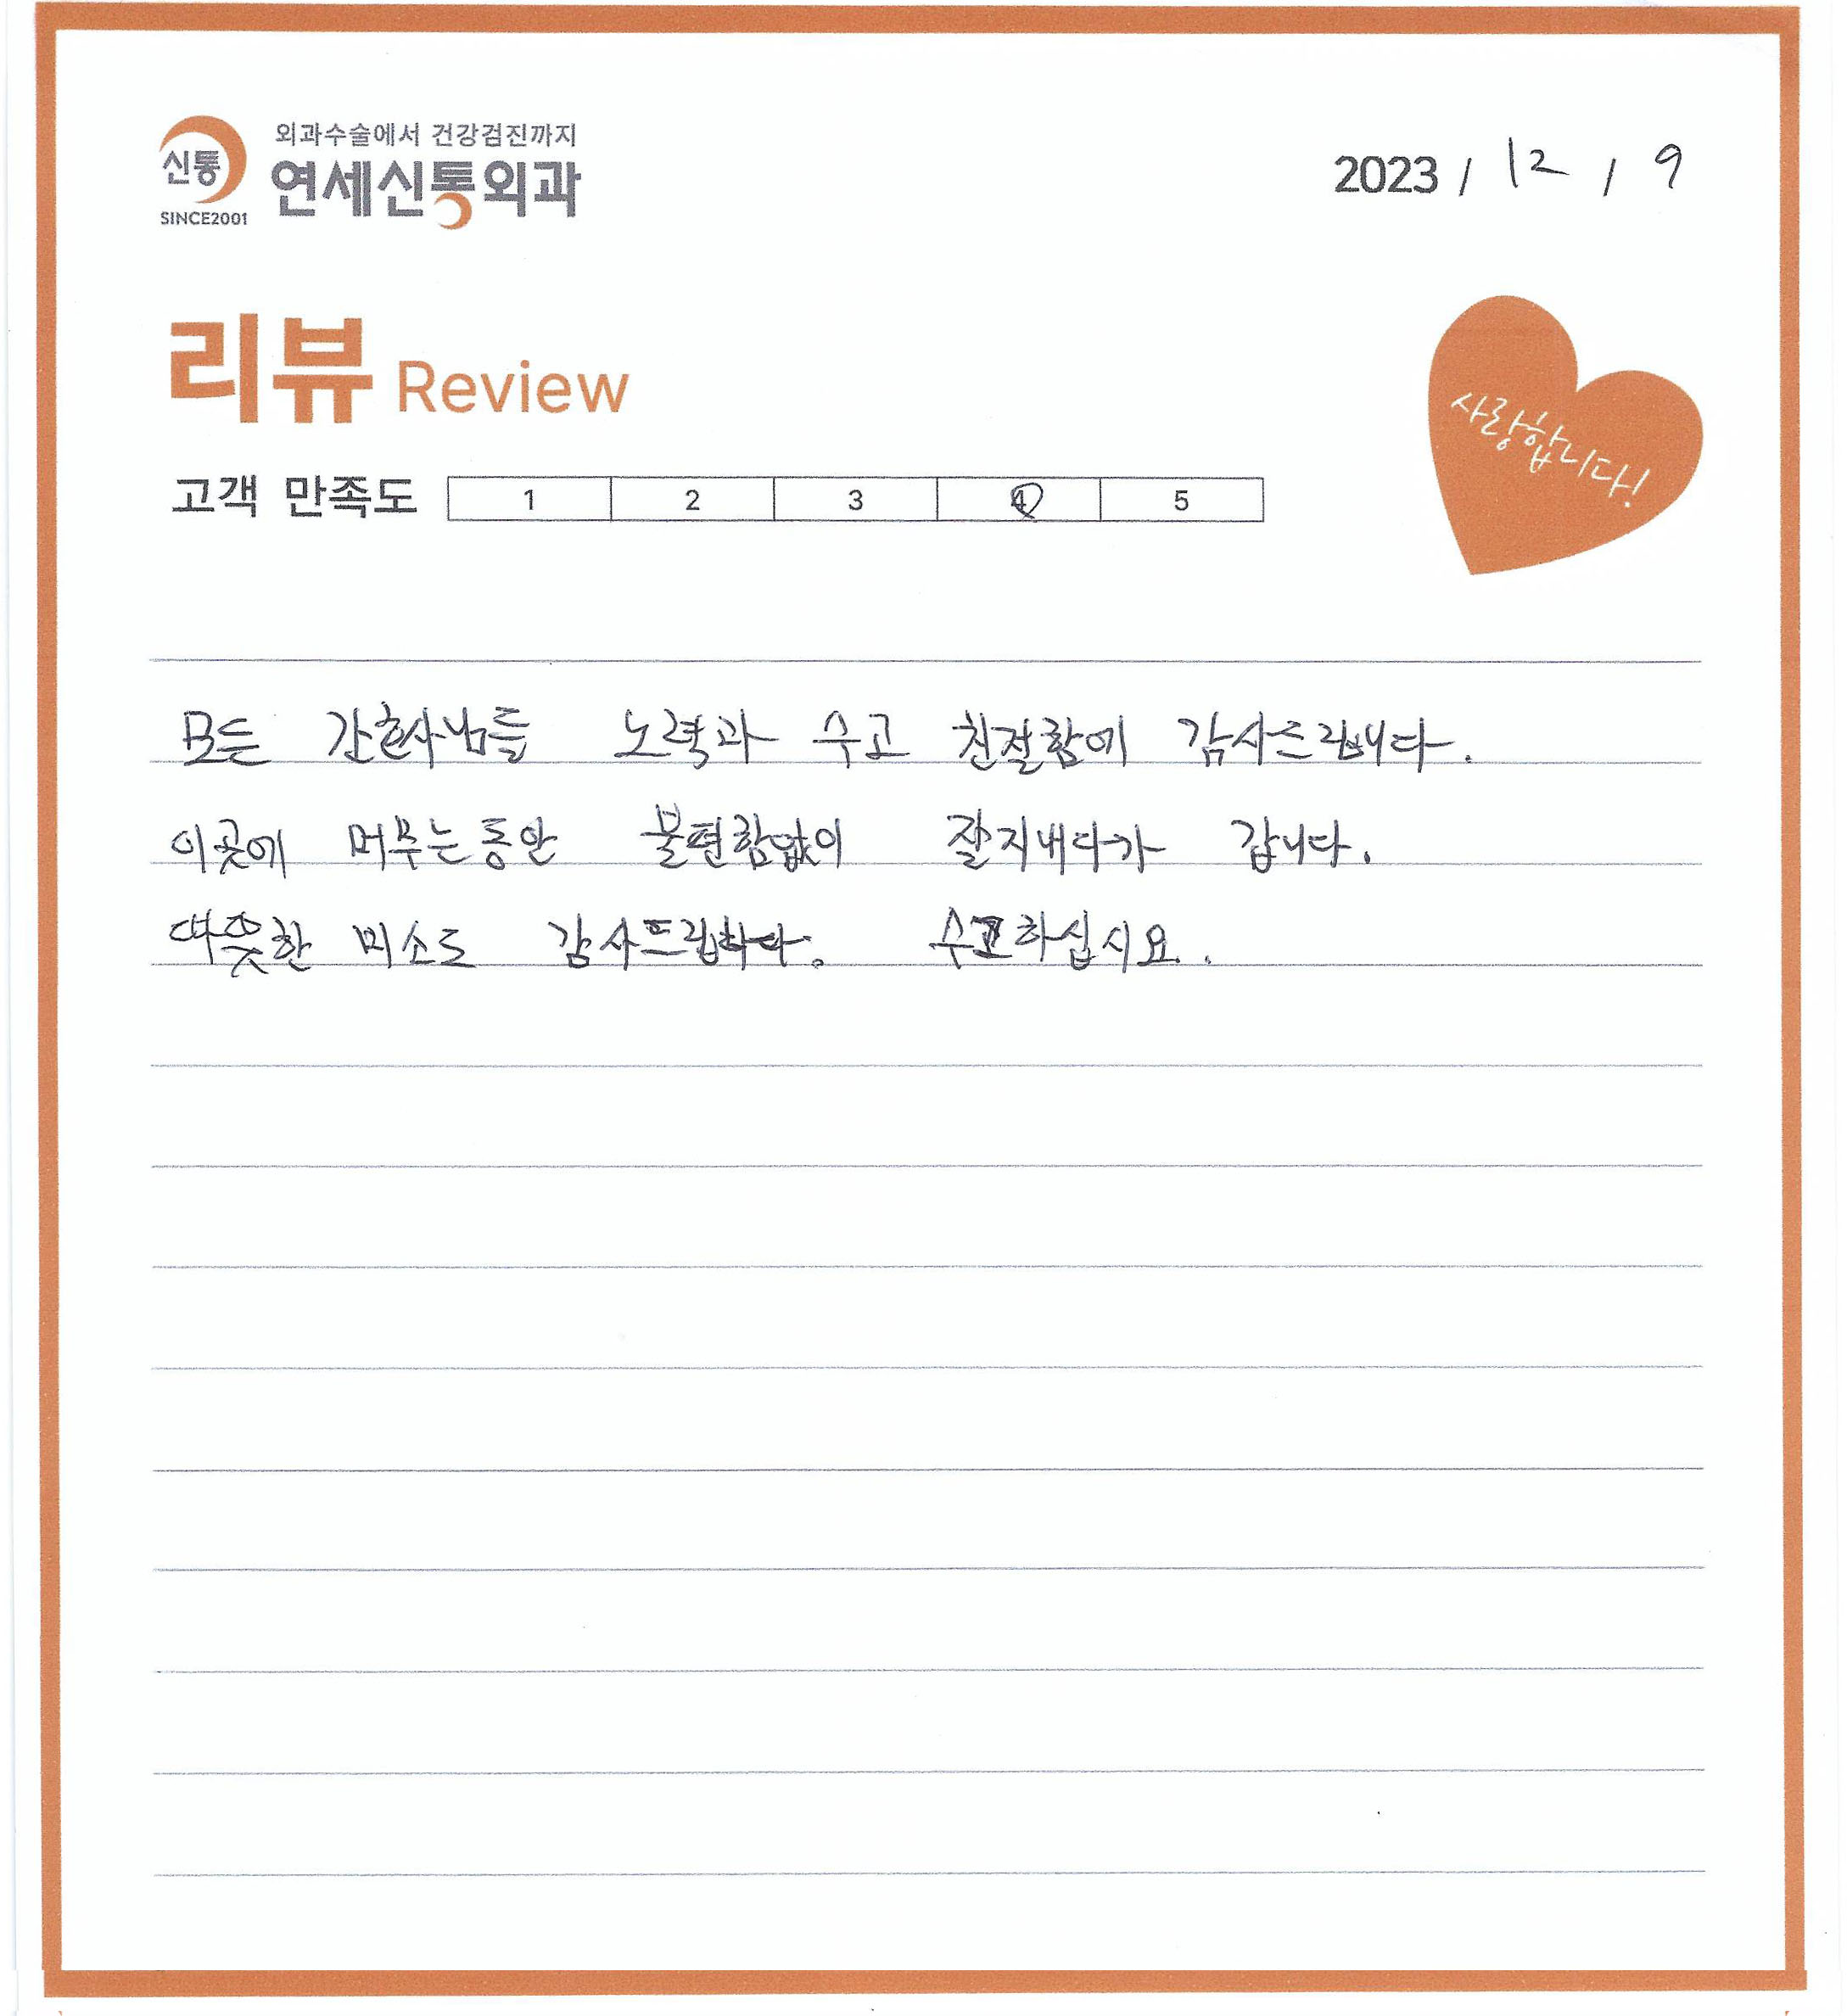 외과수술에서 건강검진까지
신통
연세신통외과
SINCE2001
2023 / 12 / 9
리뷰 Review
사랑합니다!
고객 만족도 1 2 3 4 5
모든 간호사님들 노력과 수고 친절함에 감사드립니다.
이곳에 머무는동안 불편함없이 잘지내다가 갑니다.
따뜻한 미소도 감사드립니다. 수고하십시요.